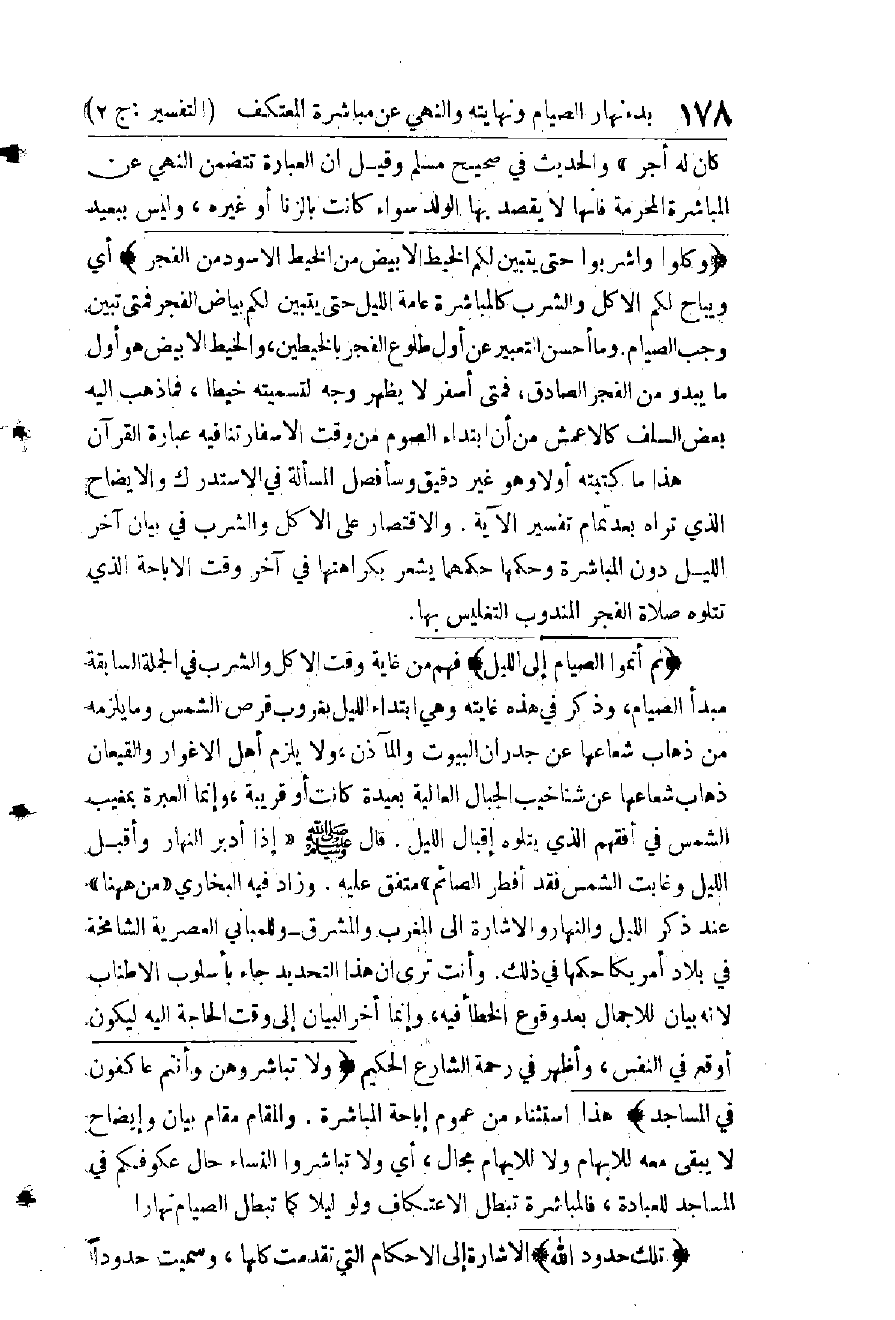 ١٧٨ بدء نهار الصيام ونهايته والنهي عن مباشرة المعتكف (التفسير : ج ٢)
كان له أجر » والحديث في صحيح مسلم وقيل ان العبارة تتضمن النهي عن
المباشرة المحرمة فانها لا يقصد بها الولد سواء كانت بالزنا أو غيره ، وليس ببعيد
﴿ وكلوا واشربوا حتى يتبين لكم الخيط الابيض من الخيط الاسود من الفجر ﴾ أي
ويباح لكم الاكل والشرب كالمباشرة عامة الليل حتى يتبين لكم بياض الفجر فمتى تبين
وجب الصيام. وما أحسن التعبير عن أول طلوع الفجر بالخيطين، والخيط الابيض هو أول
ما يبدو من الفجر الصادق، فمتى أسفر لا يظهر وجه لتسميته خيطا ، فماذهب اليه
بعض السلف كالاعمش من أن ابتداء الصوم من وقت الاسفار تنافيه عبارة القرآن
هذا ما كتبته أولا وهو غير دقيق وسأفصل المسألة في الاستدرك والايضاح
الذي تراه بعد تمام تفسير الآية . والاقتصار على الاكل والشرب في بيان آخر
الليل دون المباشرة وحكمها حكمهما يشعر بكراهتها في آخر وقت الاباحة الذي
تتلوه صلاة الفجر المندوب التغليس بها.
﴿ ثم أتموا الصيام إلى الليل ﴾ فهم من غاية وقت الاكل والشرب في الجملة السابقة
مبدأ الصيام، وذكر في هذه غايته وهي ابتداء الليل بغروب قرص الشمس وما يلزمه
من ذهاب شعاعها عن جدران البيوت والمآذن ، ولا يلزم أهل الاغوار والقيعان
ذهاب شعاعها عن شناخيب الجبال العالية بعيدة كانت أو قريبة ، وإنما العبرة بمغيب
الشمس في أفقهم الذي يتلوه إقبال الليل . قال ﷺ « إذا أدبر النهار وأقبل
الليل وغابت الشمس فقد أفطر الصائم » متفق عليه . وزاد فيه البخاري «من ههنا»
عند ذكر الليل والنهار والاشارة الى المغرب والمشرق ـ وللمباني العصرية الشامخة
في بلاد أمريكا حكمها في ذلك. وأنت ترى ان هذا التحديد جاء بأسلوب الاطناب
لانه بيان للاجمال بعد وقوع الخطأ فيه، وإنما أخر البيان إلى وقت الحاجة اليه ليكون
أوقع في النفس ، وأظهر في رحمة الشارع الحكيم ﴿ ولا تباشروهن وأنتم عاكفون
في المساجد ﴾ هذا استثناء من عموم إباحة المباشرة . والمقام مقام بيان وإيضاح
لا يبقى معه للابهام ولا للايهام مجال ، أي ولا تباشروا النساء حال عكوفكم في
المساجد للعبادة ، فالمباشرة تبطل الاعتكاف ولو ليلا كما تبطل الصيام نهارا
﴿ تلك حدود الله ﴾ الاشارة إلى الاحكام التي تقدمت كلها ، وسميت حدوداً